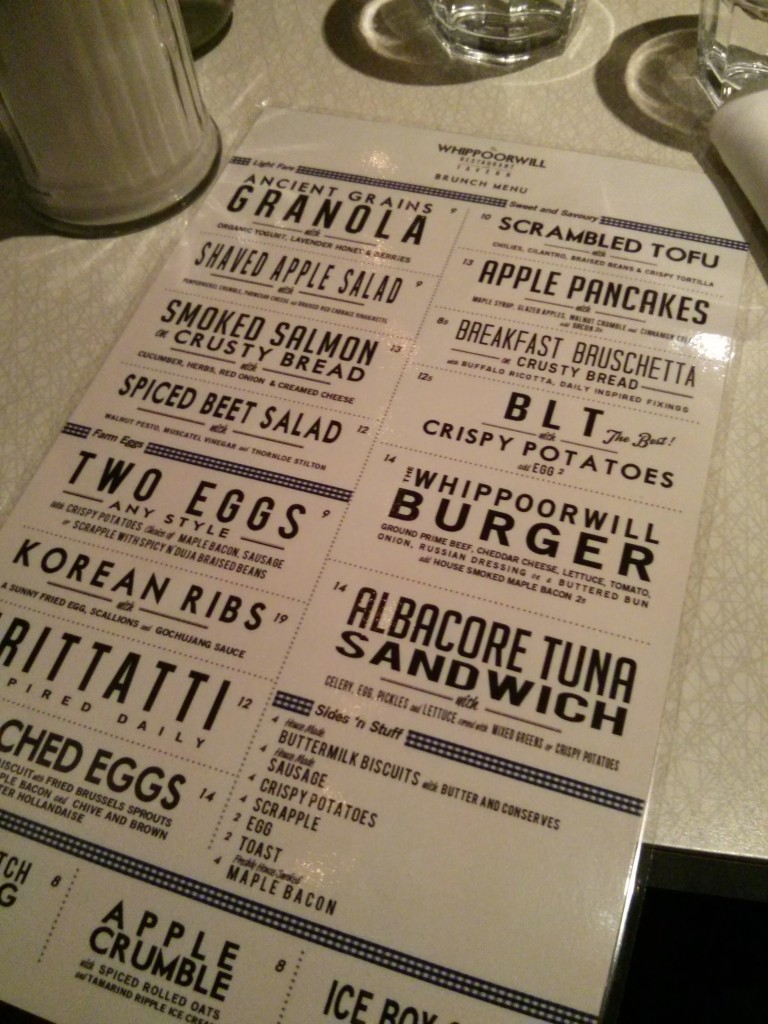 The
WHIPPOORWILL
RESTAURANT
TAVERN
BRUNCH MENU
Light Fare
ANCIENT GRAINS 9
GRANOLA
with
ORGANIC YOGURT, LAVENDER HONEY & BERRIES
SHAVED APPLE SALAD 9
with
PARMESAN CHEESE and RED CABBAGE VINAIGRETTE
SMOKED SALMON 13
on CRUSTY BREAD
with
CUCUMBER, HERBS, RED ONION & CREAMED CHEESE
SPICED BEET SALAD 12
with
WALNUT PESTO, MUSCATEL VINEGAR and THORNLOE STILTON
Farm Eggs
TWO EGGS 9
ANY STYLE
with CRISPY POTATOES Choice of MAPLE BACON, SAUSAGE
or SCRAPPLE WITH SPICY N'DUJA BRAISED BEANS
KOREAN RIBS 19
with
A SUNNY FRIED EGG, SCALLIONS and GOCHUJANG SAUCE
RITTATTI 12
PIRED DAILY
CHED EGGS 14
ISCUIT with FRIED BRUSSELS SPROUTS
PLE BACON and CHIVE AND BROWN
TER HOLLANDAISE
Sweet and Savoury
10 SCRAMBLED TOFU
with
CHILIES, CILANTRO, BRAISED BEANS & CRISPY TORTILLA
13 APPLE PANCAKES
with
MAPLE SYRUP, GLAZED APPLES, WALNUT CRUMBLE and CINNAMON
add BACON 2s
8s BREAKFAST BRUSCHETTA
on CRUSTY BREAD
with BUFFALO RICOTTA, DAILY INSPIRED FIXINGS
12s BLT The Best!
with
CRISPY POTATOES
add EGG 2
14 THE WHIPPOORWILL
BURGER
GROUND PRIME BEEF, CHEDDAR CHEESE, LETTUCE, TOMATO,
ONION, RUSSIAN DRESSING on a BUTTERED BUN
add HOUSE SMOKED MAPLE BACON 2s
14 ALBACORE TUNA
SANDWICH
with
CELERY, EGG, PICKLES and LETTUCE comes with MIXED GREENS or CRISPY POTATOES
Sides 'n Stuff
4 House Made
BUTTERMILK BISCUITS with BUTTER AND CONSERVES
4 House Made
SAUSAGE
4 CRISPY POTATOES
4 SCRAPPLE
2 EGG
2 TOAST
4 Freshly House Smoked
MAPLE BACON
TCH 8
G
APPLE 8
CRUMBLE
with SPICED ROLLED OATS
and TAMARIND RIPPLE ICE CREA
ICE BOX